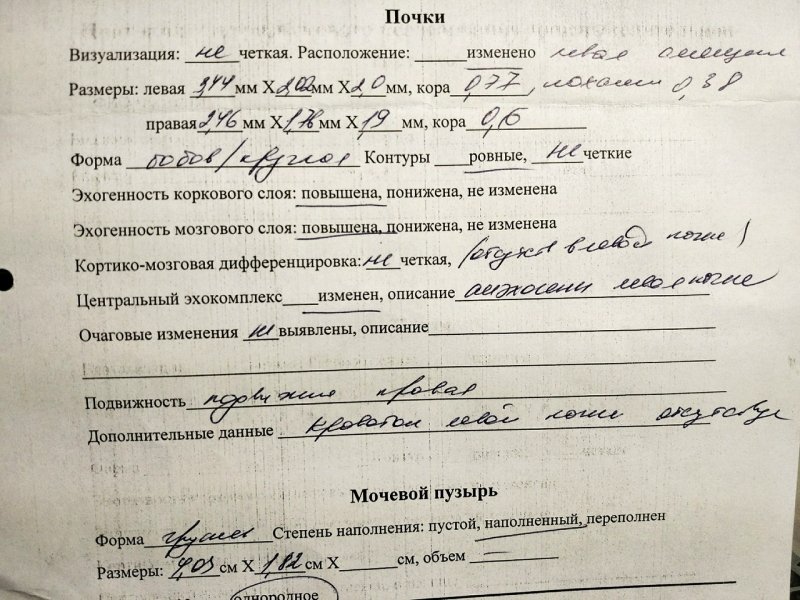 Почки
Визуализация: не четкая. Расположение: изменено левая смещена
Размеры: левая 3,44 мм X 2,02 мм X 2,0 мм, кора 0,77, лоханки 0,38
правая 2,46 мм X 1,78 мм X 1,9 мм, кора 0,6
Форма бобов/круглая Контуры ровные, не четкие
Эхогенность коркового слоя: повышена, понижена, не изменена
Эхогенность мозгового слоя: повышена, понижена, не изменена
Кортико-мозговая дифференцировка: не четкая, (отсутств в левой почке)
Центральный эхокомплекс изменен, описание левая почке
Очаговые изменения не выявлены, описание
Подвижность подвижна правая
Дополнительные данные кровоток левой почки отсутствуе
Мочевой пузырь
Форма Степень наполнения: пустой, наполненный, переполнен
Размеры: см X 1,82 см X см, объем —
однородное